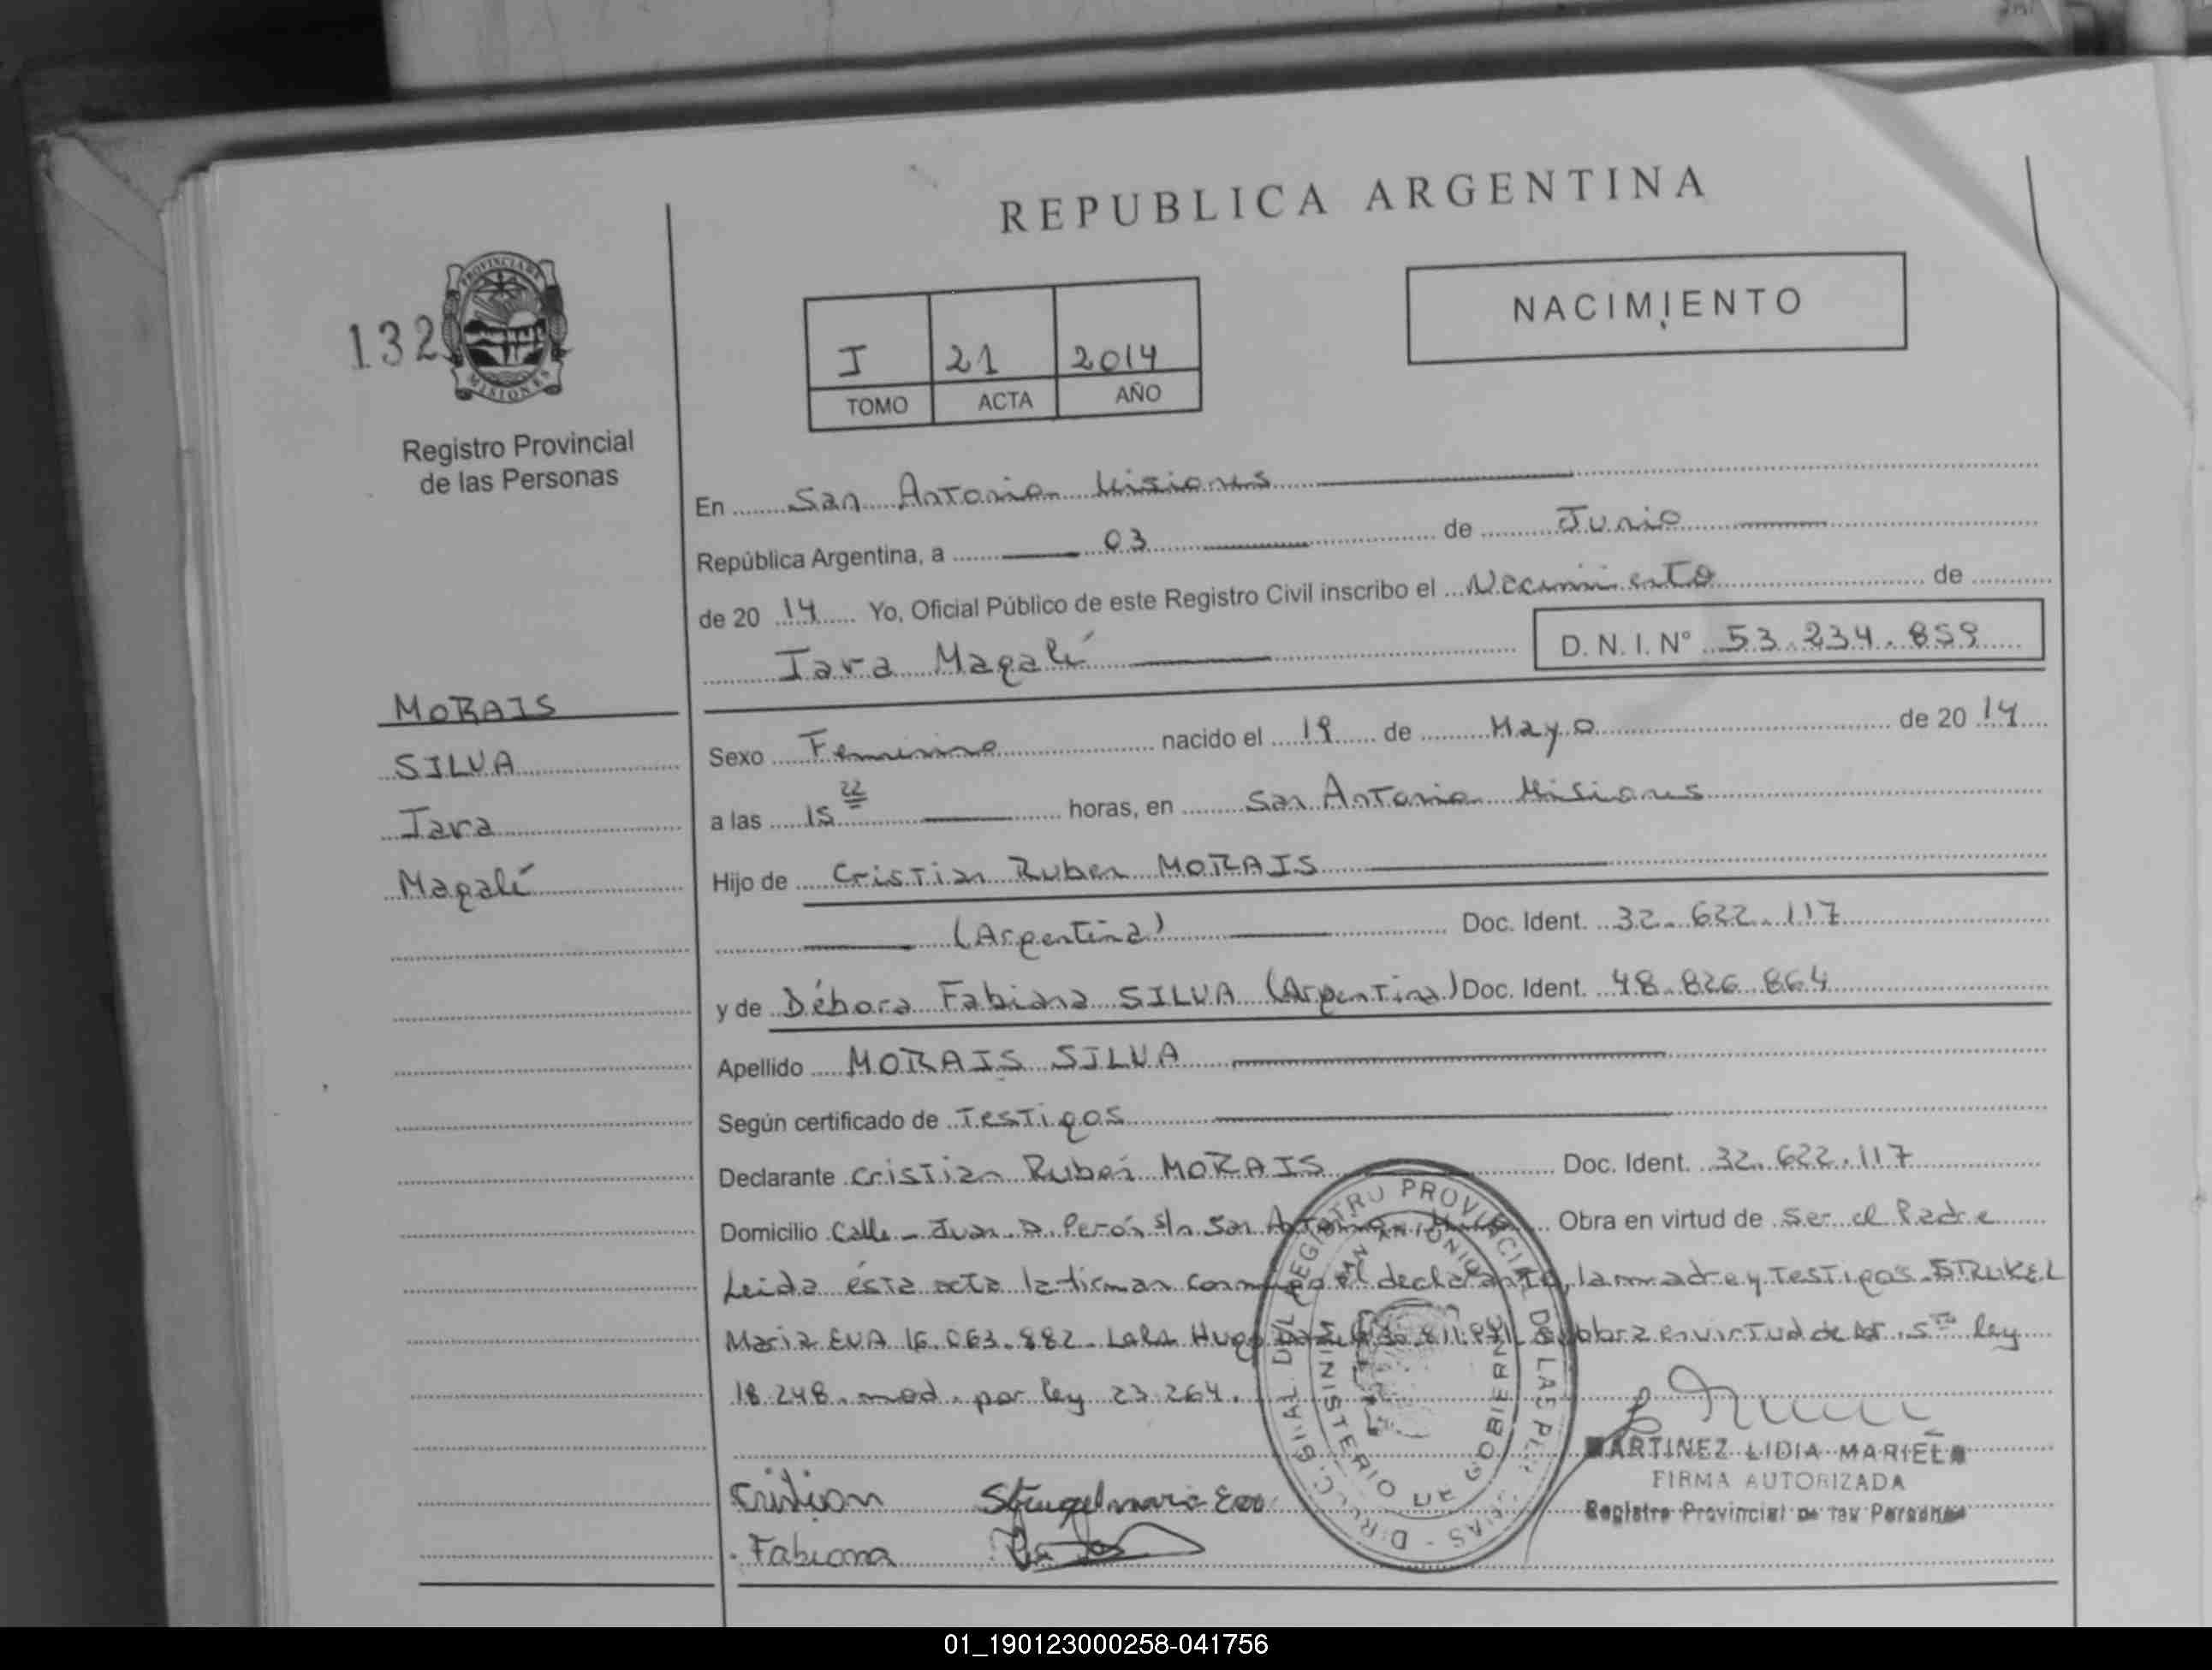 REPUBLICA ARGENTINA
132
PROVINCIA DE
MISIONES
Registro Provincial
de las Personas
NACIMIENTO
I 21 2014
TOMO ACTA AÑO
En San Antonio Misiones
República Argentina, a 03 de Junio
de 2014 Yo, Oficial Público de este Registro Civil inscribo el Nacimiento de
Iara Magalí D. N. I. N° 53.234.859
MORAIS
SILVA
Iara
Magalí
Sexo Femenino nacido el 19 de Mayo de 2014
a las 15 22 horas, en San Antonio Misiones
Hijo de Cristian Ruben MORAIS
(Argentina) Doc. Ident. 32.622.117
y de Débora Fabiana SILVA (Argentina) Doc. Ident. 48.826.864
Apellido MORAIS SILVA
Según certificado de Testigos
Declarante Cristian Ruben MORAIS Doc. Ident. 32.622.117
Domicilio Calle - Juan D. Perón s/n San Antonio Obra en virtud de Ser el Padre
Leida ésta acta la firman conmigo el declarante, la madre y Testigos
Maria EVA 16.063.882 Hugo obra en virtud de Art. 5to ley
18.248. mod. por ley 23.264.
REGISTRO PROVINCIAL DE LAS
SAN ANTONIO
MINISTERIO DE GOBIERNO
MARTINEZ LIDIA MARIELA
FIRMA AUTORIZADA
Registro Provincial de las Personas
Cristian
Fabiana
01_190123000258-041756